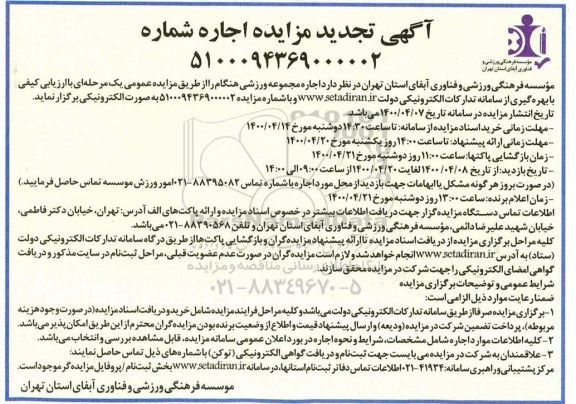 آگهی تجدید مزایده اجاره شماره
۵۱۰۰۰۹۴۳۶۹۰۰۰۰۰۲
موسسه فرهنگی ورزشی و
فناوری آبفای استان تهران
موسسه فرهنگی ورزشی و فناوری آبفای استان تهران در نظر دارد اجاره مجموعه ورزشی هنگام را از طریق مزایده عمومی یک مرحله‌ای با ارزیابی کیفی
با بهره‌گیری از سامانه تدارکات الکترونیکی دولت www.setadiran.ir و با شماره مزایده ۵۱۰۰۰۹۴۳۶۹۰۰۰۰۰۲ به صورت الکترونیکی برگزار نماید.
تاریخ انتشار مزایده در سامانه تاریخ ۱۴۰۰/۰۴/۰۷ می‌باشد.
-مهلت زمانی خرید اسناد مزایده از سامانه: تا ساعت ۱۴:۳۰ دوشنبه مورخ ۱۴۰۰/۰۴/۱۴
-مهلت زمانی ارائه پیشنهاد: تا ساعت ۱۴:۰۰ روز یکشنبه مورخ ۱۴۰۰/۰۴/۲۰
-زمان بازگشایی پاکتها: ساعت ۱۱:۰۰ روز دوشنبه مورخ ۱۴۰۰/۰۴/۲۱
- تاریخ بازدید: از تاریخ ۱۴۰۰/۰۴/۰۸ لغایت ۱۴۰۰/۰۴/۲۰ از ساعت ۰۹:۰۰ الی ۱۴:۰۰
(در صورت بروز هر گونه مشکل یا ابهامات جهت بازدید از محل مورد اجاره با شماره تماس ۸۸۳۹۵۰۸۲-۰۲۱ امور ورزش موسسه تماس حاصل فرمایید.)
-زمان اعلام برنده: ساعت ۱۳:۰۰ روز دوشنبه مورخ ۱۴۰۰/۰۴/۲۱
اطلاعات تماس دستگاه مزایده گزار جهت دریافت اطلاعات بیشتر در خصوص اسناد مزایده و ارائه پاکت‌های الف آدرس: تهران، خیابان دکتر فاطمی،
خیابان شهید علیرضا دائمی، موسسه فرهنگی ورزشی و فناوری آبفای استان تهران و تلفن ۸۸۳۹۰۵۶۸-۰۲۱ می‌باشد.
کلیه مراحل برگزاری مزایده از دریافت اسناد مزایده تا ارائه پیشنهاد مزایده‌گران و بازگشایی پاکت‌ها از طریق درگاه سامانه تدارکات الکترونیکی دولت
(ستاد) به آدرس www.setadiran.ir انجام خواهد شد و لازم است مزایده‌گران در صورت عدم عضویت قبلی، مراحل ثبت نام در سایت مذکور و دریافت
گواهی امضای الکترونیکی را جهت شرکت در مزایده محقق سازند.
۰۲۱-۸۸۳۴۹۶۷۰-۵
شرایط عمومی و توضیحات برگزاری مزایده
ضمنا رعایت موارد ذیل الزامی است:
۱-برگزاری مزایده صرفا از طریق سامانه تدارکات الکترونیکی دولت می‌باشد و کلیه مراحل فرایند مزایده شامل خرید و دریافت اسناد مزایده (در صورت وجود هزینه
مربوطه)، پرداخت تضمین شرکت در مزایده (ودیعه)، ارسال پیشنهاد قیمت و اطلاع از وضعیت برنده بودن مزایده‌گران محترم از این طریق امکان پذیر می‌باشد.
۲- کلیه اطلاعات موارد اجاره شامل مشخصات، شرایط و نحوه اجاره در برد اعلان عمومی سامانه مزایده، قابل مشاهده بررسی و انتخاب می‌باشد.
۳-علاقمندان به شرکت در مزایده می‌بایست جهت ثبت نام و دریافت گواهی الکترونیکی (توکن) با شماره‌های ذیل تماس حاصل نمایند:
مرکز پشتیبانی و راهبری سامانه: ۴۱۹۳۴-۰۲۱ اطلاعات تماس دفاتر ثبت نام استانها، در سامانه www.setadiran.ir بخش ثبت نام / پروفایل مزایده‌گر موجود است.
موسسه فرهنگی ورزشی و فناوری آبفای استان تهران